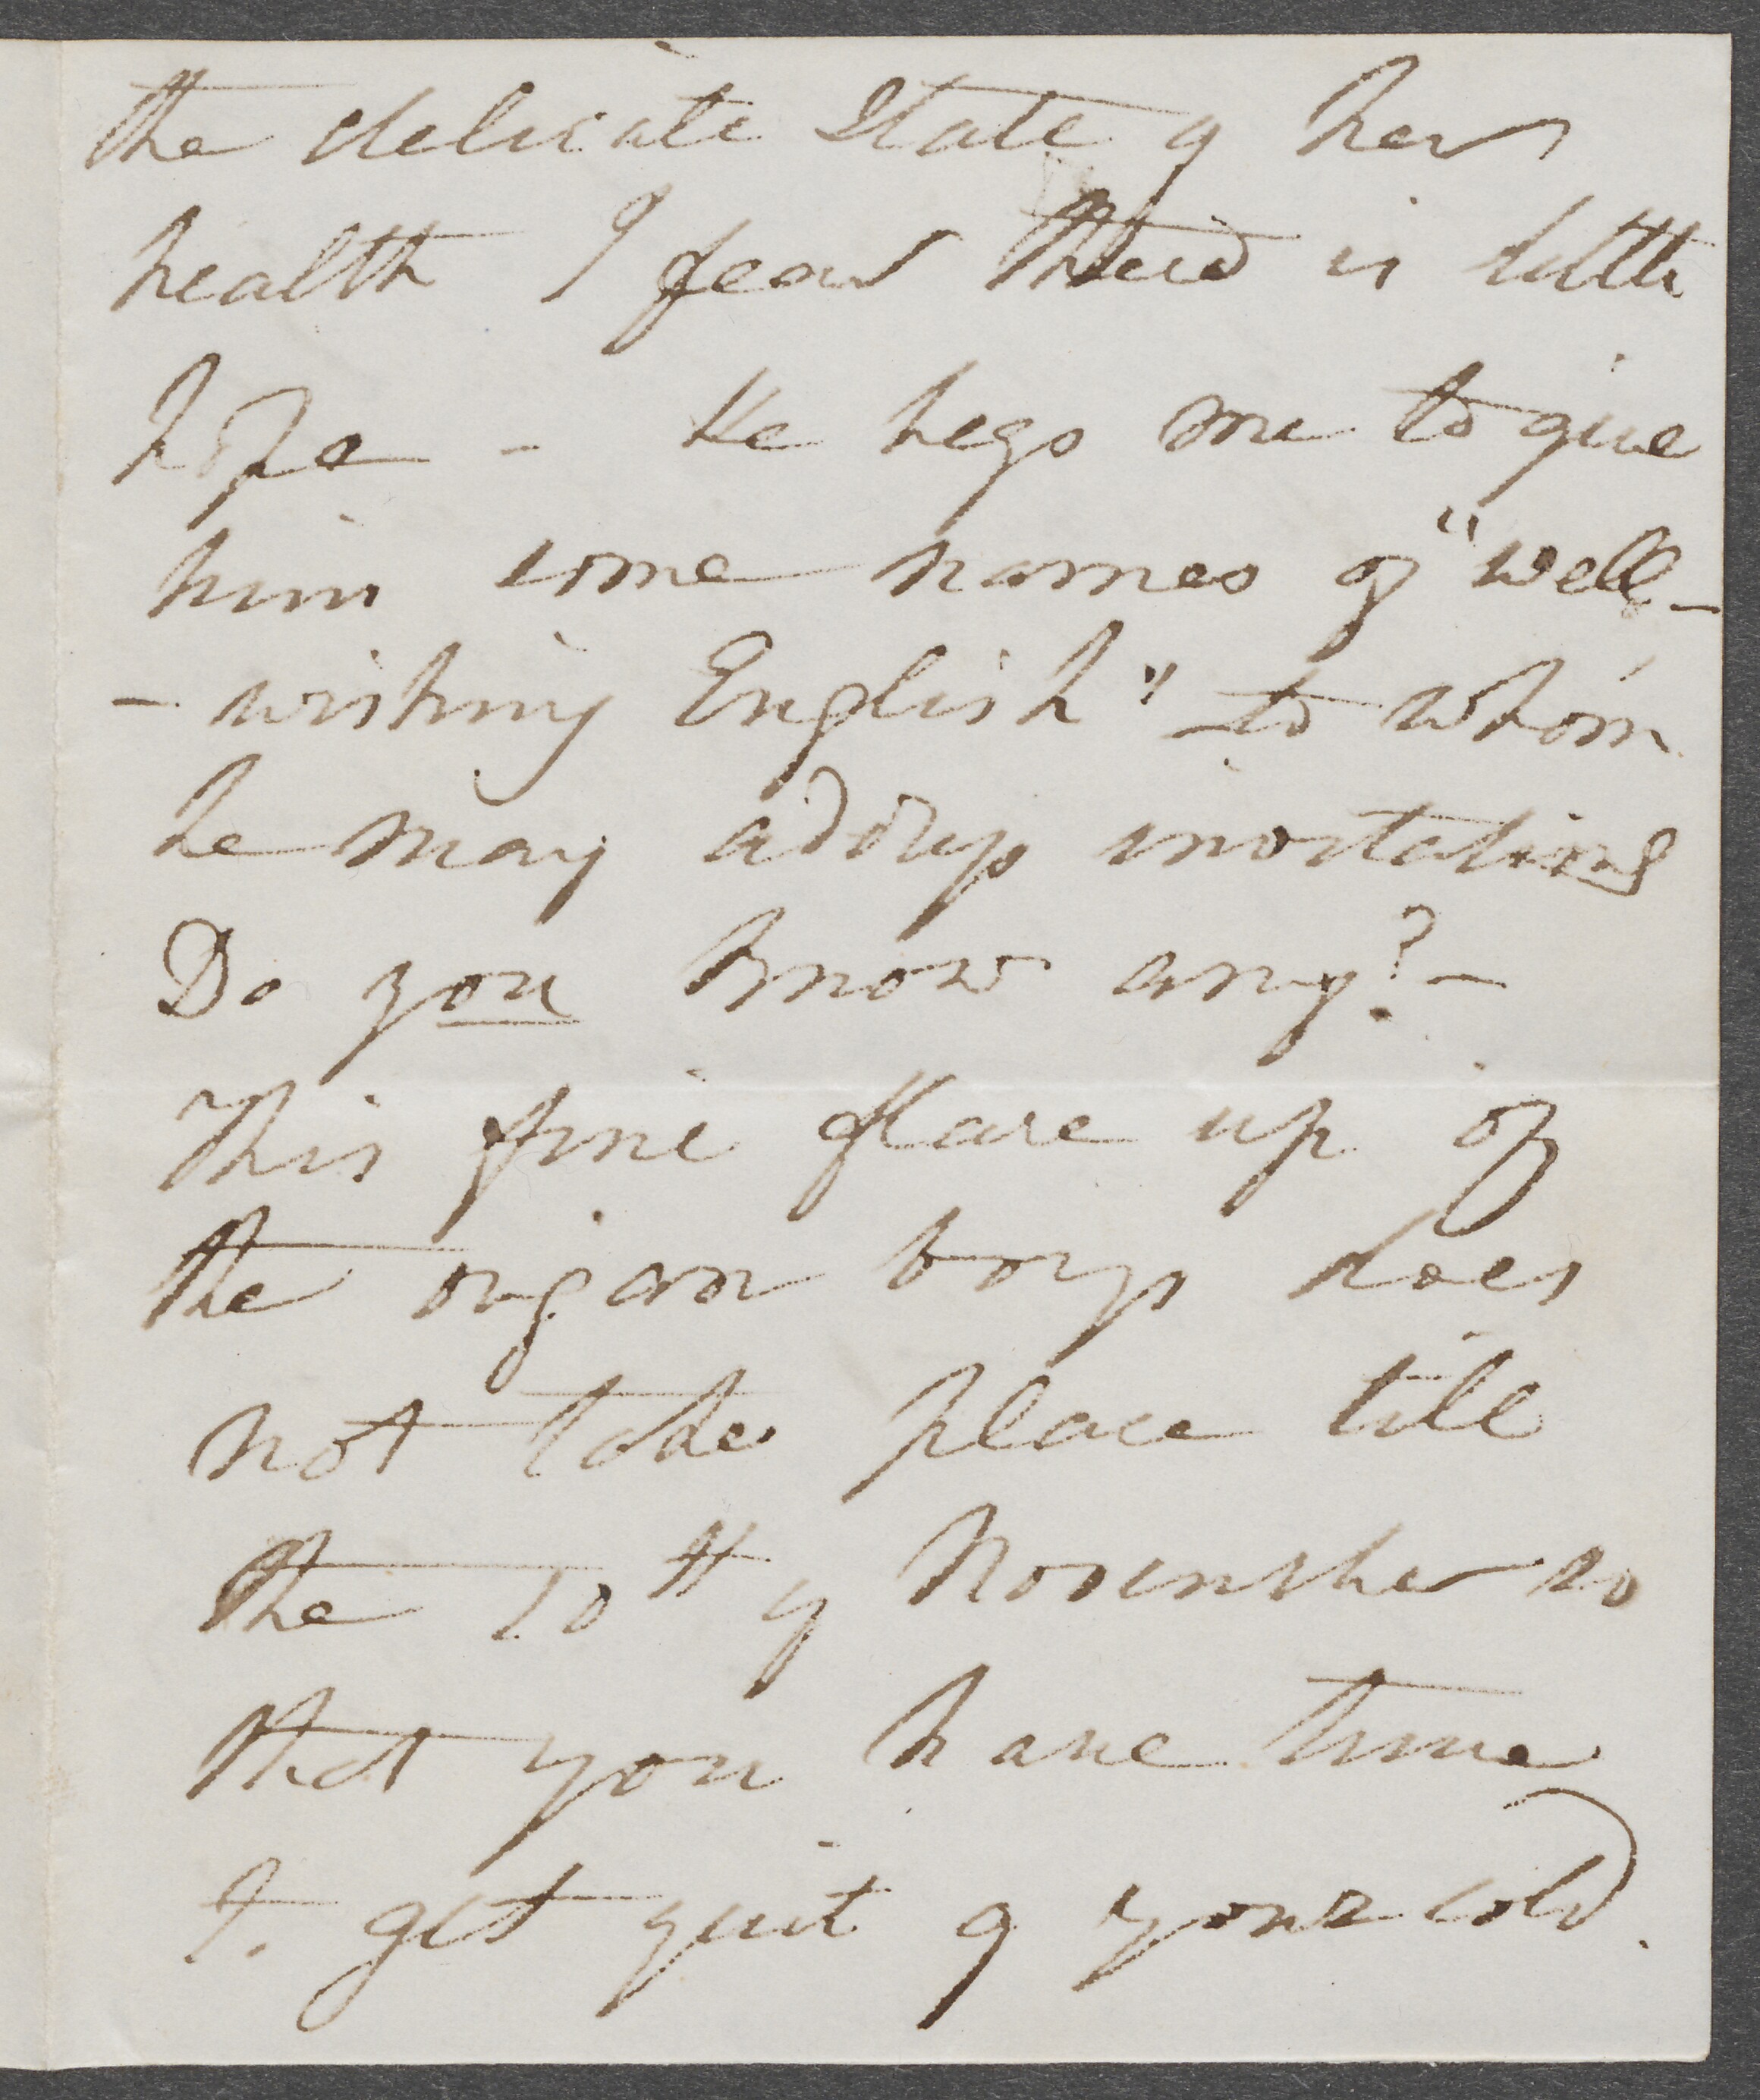 the delicate State of her
health I fear there is little
hope - He begs me to give
him some names of "well-
- wishing English" to whom
he may address invitations
Do you know any? -
This fine flare up of
the organ boys does
not take place till
the 10th of November so
that you have time
to get quit of your cold.